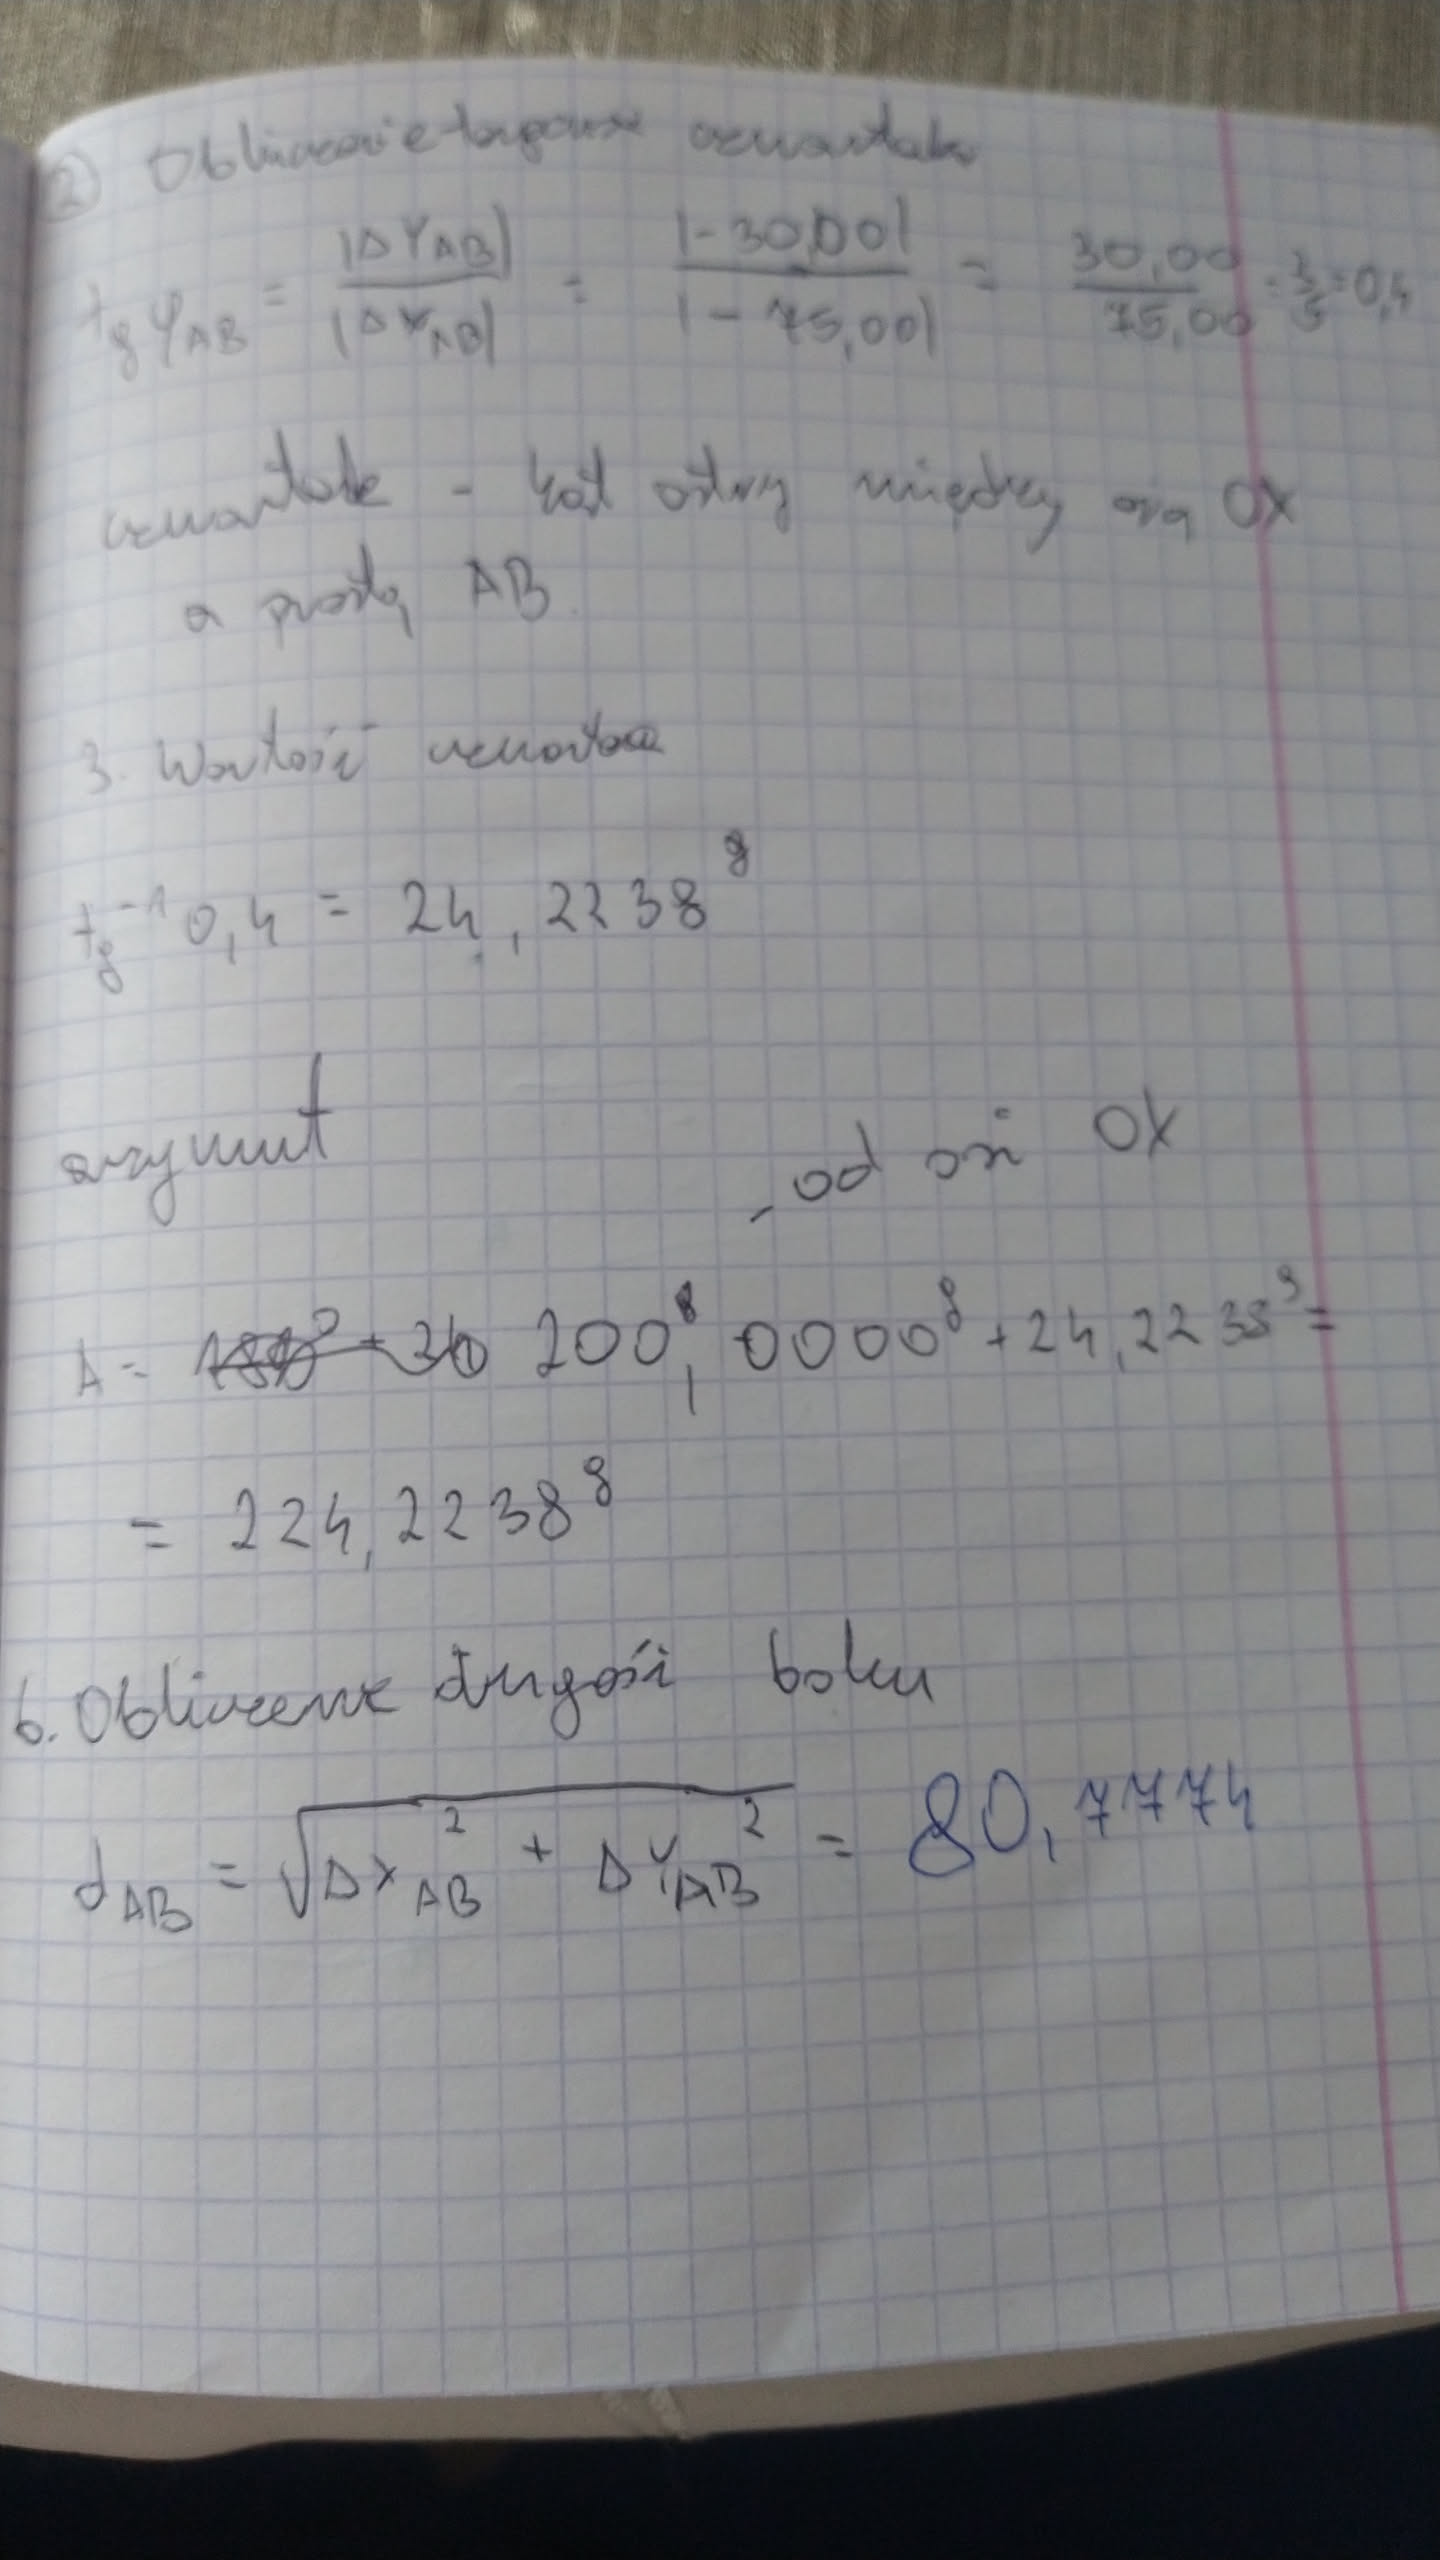 2) Obliczenie tangensa czwartaka
tg φAB = |ΔYAB| / |ΔXAB| = |-30,00| / |-75,00| = 30,00 / 75,00 = 2/5 = 0,4
czwartak - kąt ostry między osią OX
a prostą AB.
3. Wartość czwartaka
tg⁻¹ 0,4 = 24,2238ᵍ
azymut
- od osi OX
A = 200ᵍ,0000ᵍ + 24,2238ᵍ =
= 224,2238ᵍ
6. Obliczenie długości boku
dAB = √ΔXAB² + ΔYAB² = 80,7774